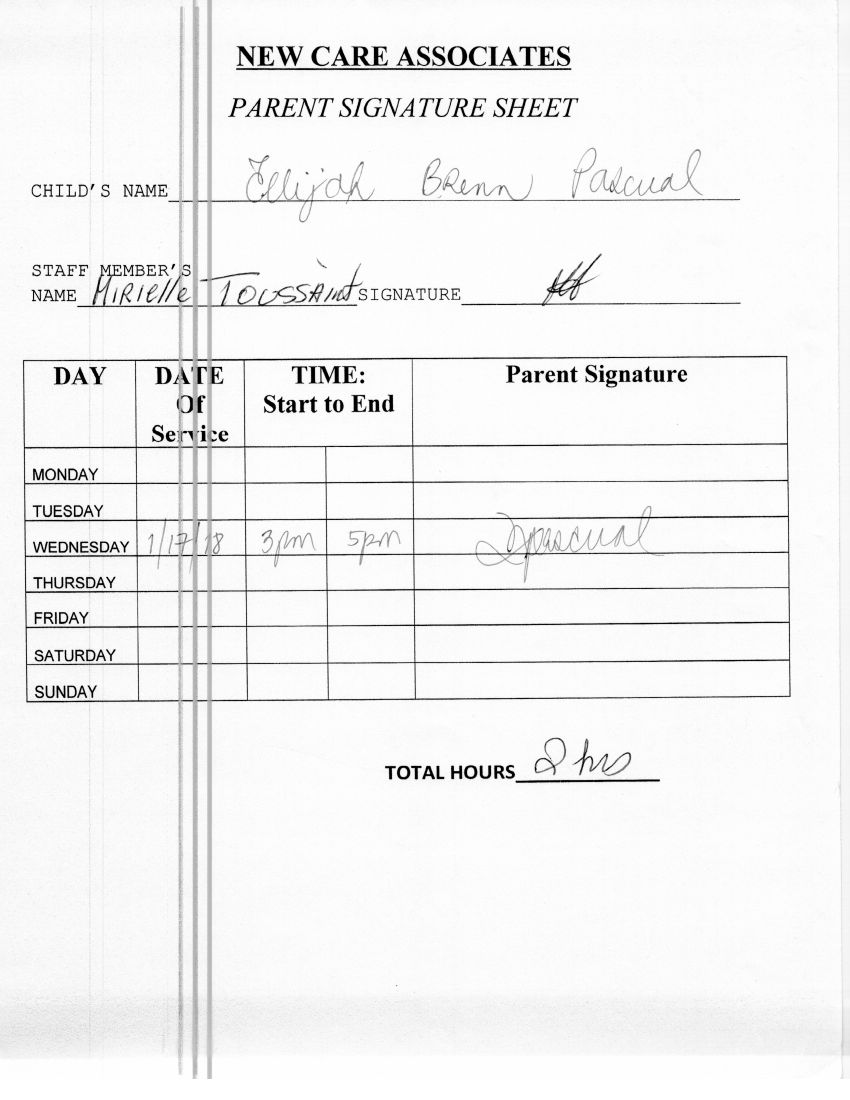 NEW CARE ASSOCIATES
PARENT SIGNATURE SHEET
CHILD'S NAME Ellijah Brenn Pascual
STAFF MEMBER'S
NAME Mirielle Toussaint SIGNATURE
DAY DATE Of Service TIME: Start to End Parent Signature
MONDAY
TUESDAY
WEDNESDAY 1/17/18 3pm 5pm pascual
THURSDAY
FRIDAY
SATURDAY
SUNDAY
TOTAL HOURS 2 hrs